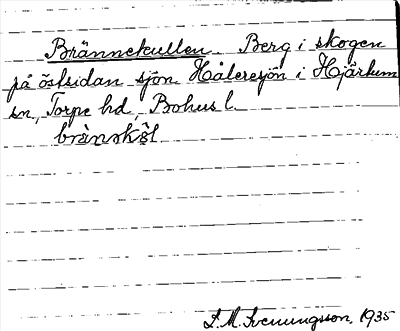 Brännekullen. Berg i skogen
på östsidan sjön Hålersjön i Hjärtum
sn, Torpe hd, Bohus l.
brànskl̥
S.M. Svenungsson, 1935